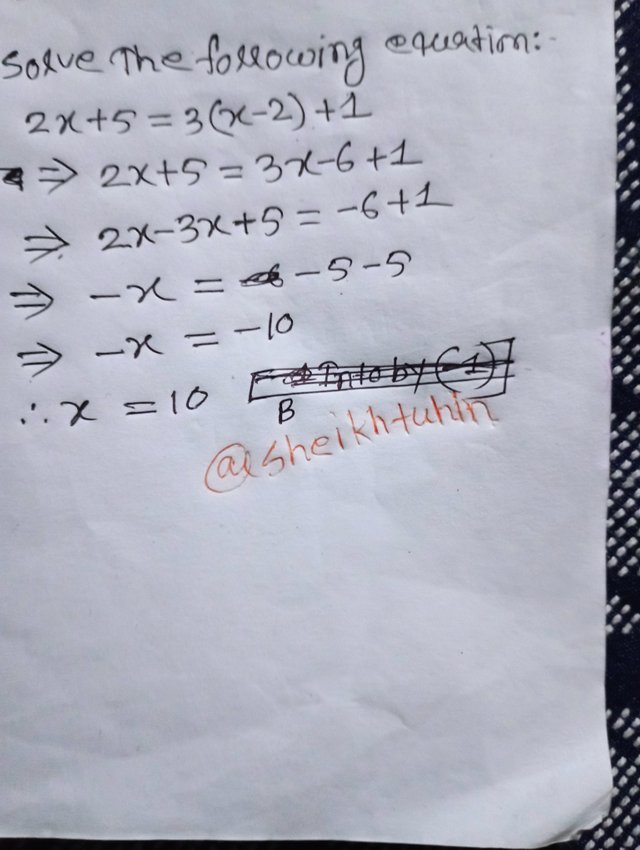 Solve The following equation:-
2x+5=3(x-2)+1
⇒ 2x+5=3x-6+1
⇒ 2x-3x+5=-6+1
⇒ -x = -5-5
⇒ -x = -10
∴ x = 10
B
@sheikhtuhin